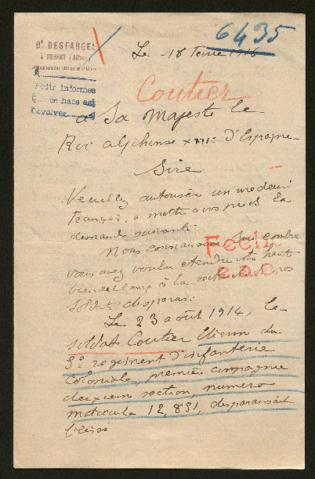 6435
Dr DESFARGES
Le 18 1916
Pedir informes
Devolver
Coutier
a Sa Majesté le
Roi alphonse XIII d'Espagne
Sire
Veuillez autoriser un medecin
français, a mettre a vos pieds la
demande suivante.
Nous connaissons
vous avez voulu etendre votre haute
bienveillance à la recherche de nos
soldats disparus.
Le 23 août 1914, le
soldat Coutier du
3e regiment d'infanterie
Coloniale, première compagnie
deuxieme section, numero
matricule 12,851, disparaissait